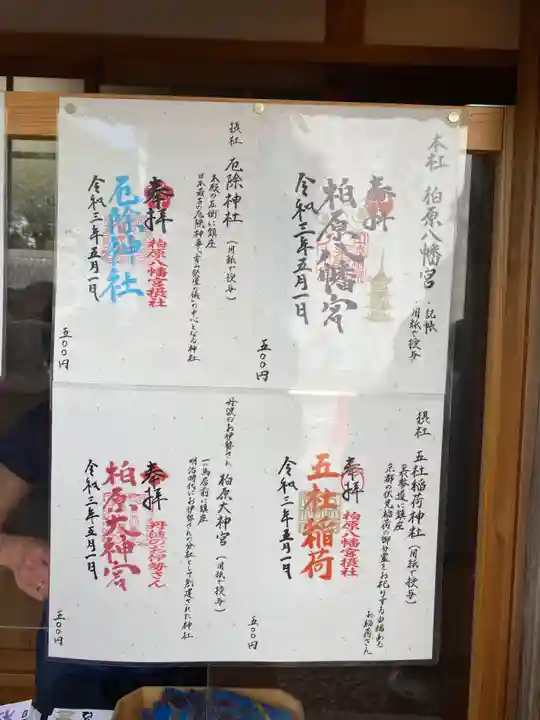 本社 柏原八幡宮
・記帳
・用紙で授与
奉拝
柏原八幡宮
令和三年五月一日
五〇〇円
摂社 厄除神社（用紙で授与）
本殿の左側に鎮座
日本最古の厄除神事
中心となる神社
奉拝
柏原八幡宮摂社
厄除神社
令和三年五月一日
五〇〇円
摂社 五社稲荷神社（用紙で授与）
裏参道に鎮座
京都の伏見稲荷の御分霊をお祀りする由緒ある
お稲荷さん
奉拝
柏原八幡宮摂社
五社稲荷
令和三年五月一日
五〇〇円
丹波のお伊勢さん 柏原大神宮（用紙で授与）
一の鳥居前に鎮座
明治時代にお伊勢さんの分社として創建された神社
奉拝
丹波のお伊勢さん
柏原大神宮
令和三年五月一日
五〇〇円